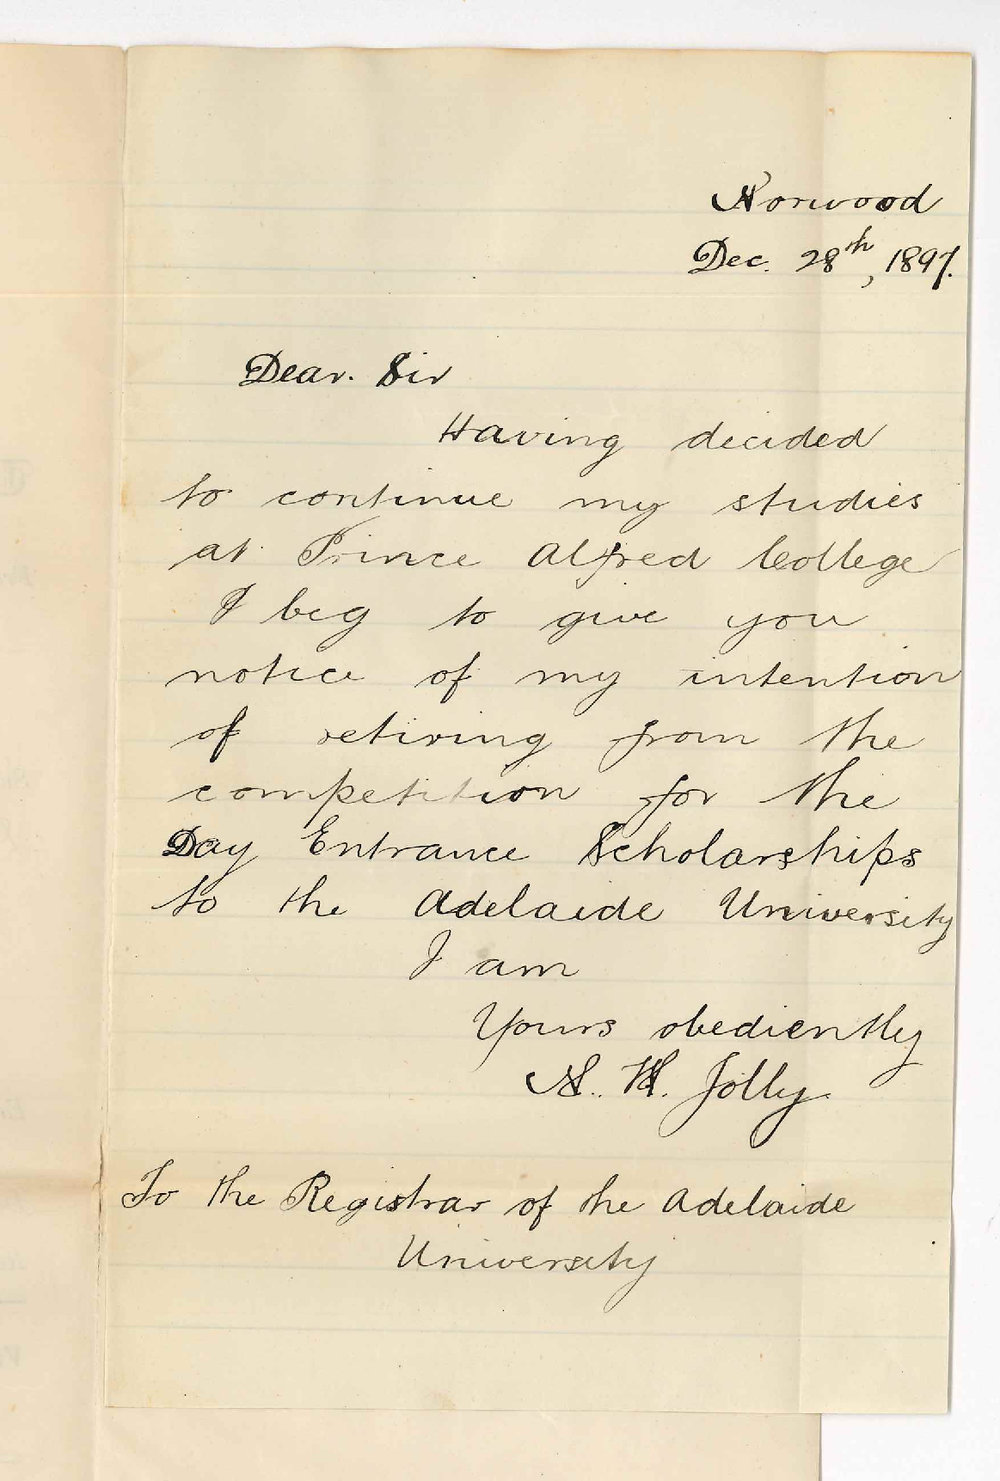 Norwood
Dec. 28th, 1897.
Dear Sir
Having decided
to continue my studies
at Prince Alfred College
I beg to give you
notice of my intention
of retiring from the
competition for the
Day Entrance Scholarships
to the Adelaide University
I am
Yours obediently
N. W. Jolly.
To the Registrar of the Adelaide
University